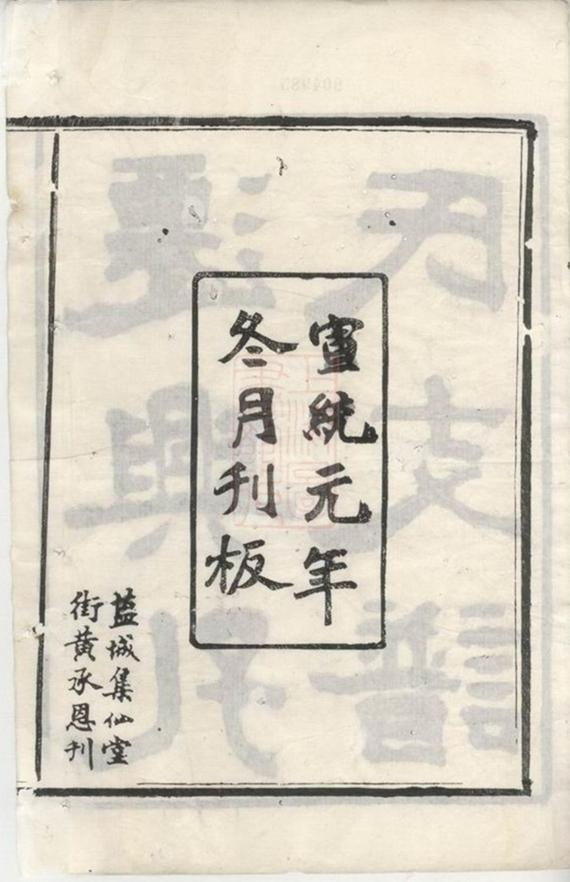 宣統元年
冬月刊板
益城集仙堂
街黃承恩刊